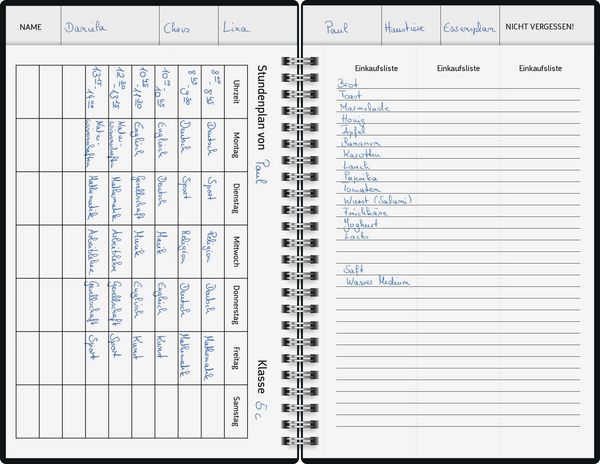 NAME Daniela Chris Lina
Stundenplan von Paul Klasse 5c
Uhrzeit Montag Dienstag Mittwoch Donnerstag Freitag Samstag
8 00 - 8 45 Deutsch Sport Religion Deutsch Mathematik
8 45 - 9 30 Deutsch Sport Religion Deutsch Mathematik
10 00 - 10 45 Englisch Deutsch Musik Englisch Kunst
10 45 - 11 30 Englisch Gesellschaft Musik Englisch Kunst
12 30 - 13 15 Natur- wissenschaften Mathematik Arbeitslehre Gesellschaft Sport
13 15 - 14 00 Natur- wissenschaften Mathematik Arbeitslehre Gesellschaft Sport
Paul Haustiere Essensplan NICHT VERGESSEN!
Einkaufsliste Einkaufsliste Einkaufsliste
Brot
Toast
Marmelade
Honig
Äpfel
Bananen
Karotten
Lauch
Paprika
Tomaten
Wurst (Salami)
Frischkäse
Joghurt
Lachs
Saft
Wasser Medium